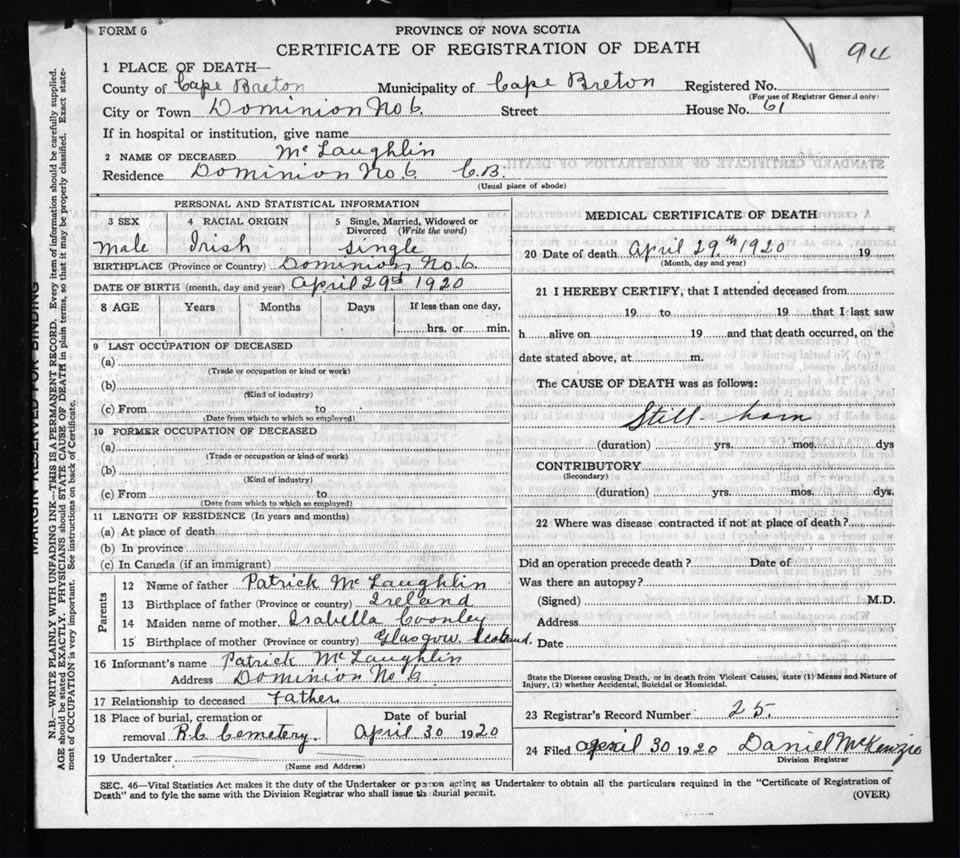 FORM 6
PROVINCE OF NOVA SCOTIA
94
CERTIFICATE OF REGISTRATION OF DEATH
1 PLACE OF DEATH—
County of Cape Breton Municipality of Cape Breton Registered No.
(For use of Registrar General only)
City or Town Dominion No 6. Street House No. 61
If in hospital or institution, give name
2 NAME OF DECEASED Mc Laughlin
Residence Dominion No. 6 C.B.
(Usual place of abode)
PERSONAL AND STATISTICAL INFORMATION
3 SEX 4 RACIAL ORIGIN 5 Single, Married, Widowed or Divorced (Write the word)
Male Irish Single
BIRTHPLACE (Province or Country) Dominion No. 6
DATE OF BIRTH (month, day and year) April 29th 1920
8 AGE Years Months Days If less than one day,
hrs. or min.
9 LAST OCCUPATION OF DECEASED
(a)
(Trade or occupation or kind or work)
(b)
(Kind of industry)
(c) From to
(Date from which to which so employed)
10 FORMER OCCUPATION OF DECEASED
(a)
(Trade or occupation or kind of work)
(b)
(Kind of industry)
(c) From to
(Date from which to which so employed)
11 LENGTH OF RESIDENCE (In years and months)
(a) At place of death
(b) In province
(c) In Canada (if an immigrant)
Parents
12 Name of father Patrick Mc Laughlin
13 Birthplace of father (Province or country) Ireland
14 Maiden name of mother Isabella Coonley
15 Birthplace of mother (Province or country) Glasgow
16 Informant's name Patrick Mc Laughlin
Address Dominion No 6.
17 Relationship to deceased Father
18 Place of burial, cremation or Date of burial
removal R.C. Cemetery. April 30 1920
19 Undertaker
(Name and Address)
MEDICAL CERTIFICATE OF DEATH
20 Date of death April 29,th 1920 19
(Month, day and year)
21 I HEREBY CERTIFY, that I attended deceased from
19 to 19 that I last saw
h alive on 19 and that death occurred, on the
date stated above, at m.
The CAUSE OF DEATH was as follows:
Still-born
(duration) yrs. mos. dys
CONTRIBUTORY
(Secondary)
(duration) yrs. mos. dys.
22 Where was disease contracted if not at place of death?
Did an operation precede death? Date of
Was there an autopsy?
(Signed) M.D.
Address
Date
State the Disease causing Death, or in death from Violent Causes, state (1) Means and Nature of
Injury, (2) whether Accidental, Suicidal or Homicidal.
23 Registrar's Record Number 25.
24 Filed April 30 1920 Daniel McKenzie
Division Registrar
SEC. 46—Vital Statistics Act makes it the duty of the Undertaker or person acting as Undertaker to obtain all the particulars required in the "Certificate of Registration of
Death" and to fyle the same with the Division Registrar who shall issue the burial permit.
(OVER)
MARGIN RESERVED FOR BINDING
N.B.—WRITE PLAINLY WITH UNFADING INK—THIS IS A PERMANENT RECORD. Every item of information should be carefully supplied.
AGE should be stated EXACTLY. PHYSICIANS should STATE CAUSE OF DEATH in plain terms, so that it may be properly classified. Exact state-
ment of OCCUPATION is very important. See instructions on back of Certificate.